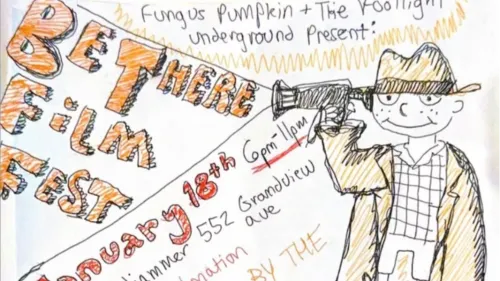 Fungus Pumpkin + The Footlight
Underground Present:
BE THERE
FILM
FEST
January 18th 6pm-11pm
552 Grandview
ave
BY THE